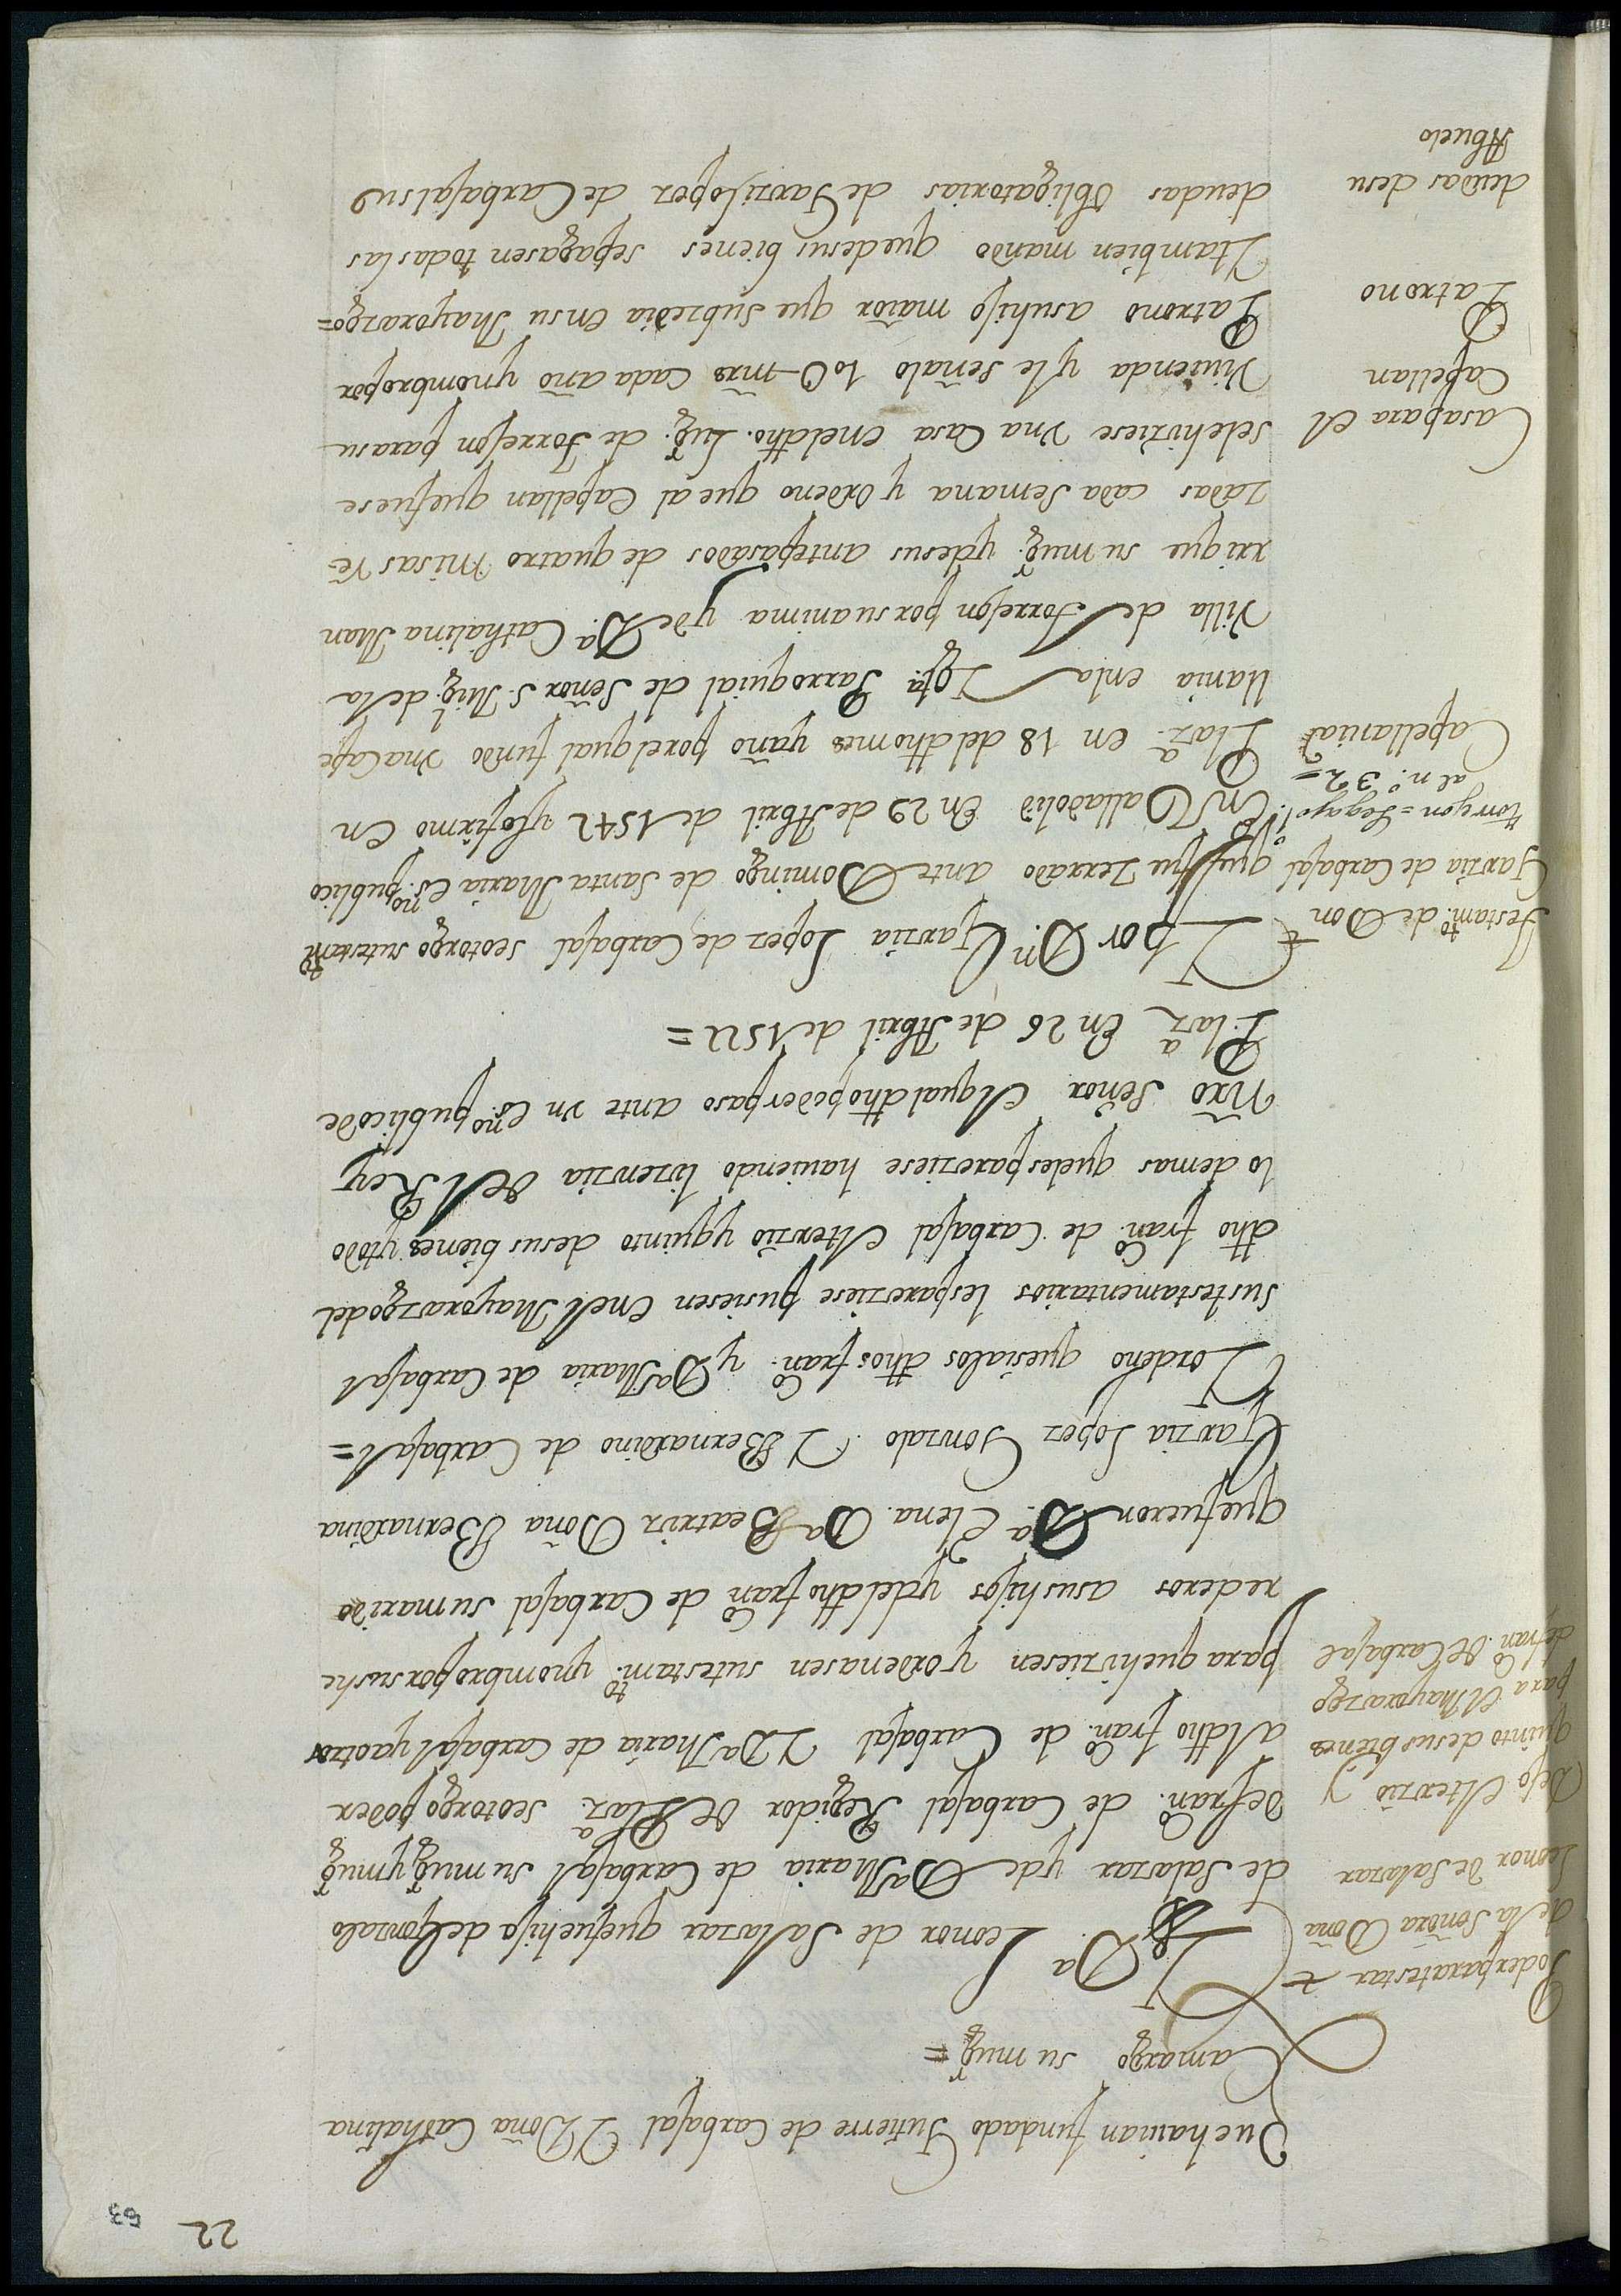 22
53
Que hauian fundado Gutierre de Carbajal Y Doña Cathalina
Camargo su mugr =
Poder para testar
de la Señora Doña
Leonor de Salazar
Dejo el terzio y
quinto de sus bienes
para el Mayorazgo
de fran.co de Carbajal
Y Da Leonor de Salazar que fue hija de Gonzalo
de Salazar y de Da Maria de Carbajal su mugr y mugr
de fran.co de Carbajal Regidor de Plaza. se otorgo poder
al dho fran.co de Carbajal Y Da Maria de Carbajal y a otros
para que hiziesen y ordenasen su testam.to y nombro por sus he
rederos a sus hijos y del dho fran.co de Carbajal su marido
que fueron Da. Elena Da Beatriz Doña Bernardina
Garzia Lopez Gonzalo Y Bernardino de Carbajal =
Y ordeno que si a los dhos fran.co y Da Maria de Carbajal
sus testamentarios les pareziese pusiesen en el Mayorazgo del
dho fran.co de Carbajal el terzio y quinto de sus bienes y todo
lo demas que les pareziese hauiendo lizenzia del Rey
Nro Señor el qual dho poder paso ante vn es.no publico de
Plaza En 26 de Abril de 1522 =
Testam.to de Don
Garzia de Carbajal
torrejon = Legajo 1.
al n.o 32 =
Y por Dn. Garzia Lopez de Carbajal se otorgo su testamto
que fue zerrado ante Domingo de Santa Maria es.no publico
En Valladolid En 29 de Abril de 1542 y lo firmo en
Plaza. en 18 del dho mes y año por el qual fundo vna Cape
Capellania
llania en la Igla. Parroquial de Señor S. Migl. de la
Villa de Torrejon por su anima y de Da. Cathalina Man
rrique su mugr. y de sus antepasados de quatro Misas re-
zadas cada Semana y ordeno que al Capellan que fuere
Casa para el
Capellan
se le hiziese vna Casa en el dho. Lugr. de Torrejon para su
Viuienda y le señalo 10U mrs cada año y nombro por
Patrono
Patrono a su hijo maior que subzedia en su Mayorazgo =
Y tambien mando que de sus bienes se pagasen todas las
deudas de su
Abuelo
deudas obligatorias de Garzi Lopez de Carbajal su